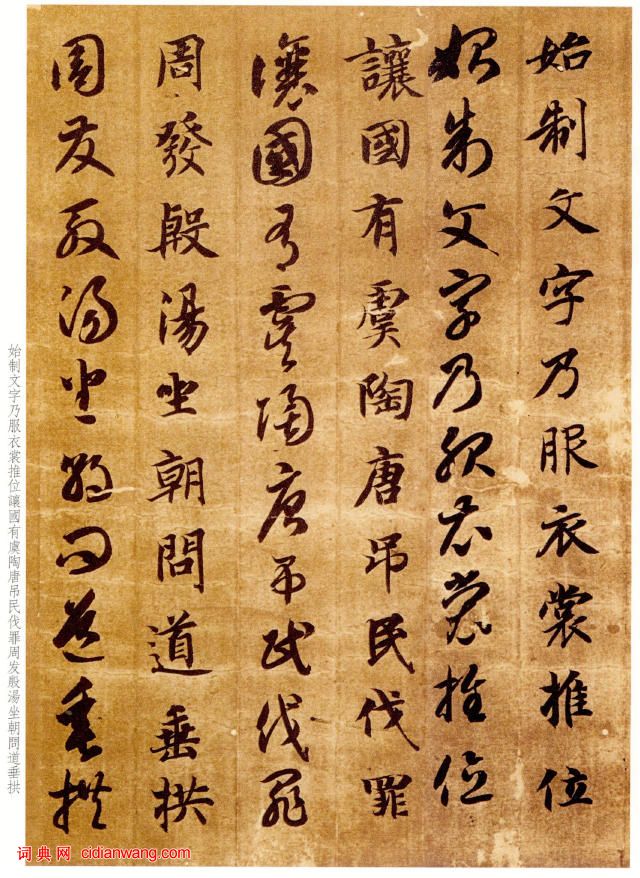 始制文字乃服衣裳推位
始制文字乃服衣裳推位
讓國有虞陶唐吊民伐罪
讓國有虞陶唐吊民伐罪
周發殷湯坐朝問道垂拱
周發殷湯坐朝問道垂拱
始制文字乃服衣裳推位讓國有虞陶唐吊民伐罪周发殷湯坐朝問道垂拱
词典网 cidianwang.com